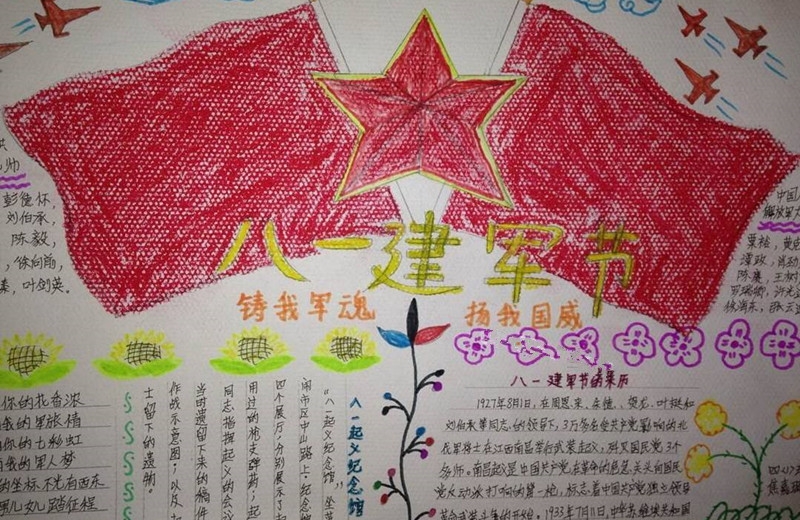 彭德怀,
刘伯承,
陈毅,
徐向前,
叶剑英。
中国
解放军
粟裕,黄
谭政,萧劲
陈赓,王树
罗瑞卿,许光
徐海东,张云
八一建军节
铸我军魂 扬我国威
你的花香浓
我的军旅情
你的七彩虹
我的军人梦
的坐标不分西东
儿女踏征程
八一起义纪念馆
“八一起义纪念馆”坐
闹市区中山路上。纪念馆
四个展厅,分别展示了起
用过的枪支弹药;起
同志指挥起义的会议
当时遗留下来的稿件
作战示意图;以及
士留下的遗物。
八一建军节的来历
1927年8月1日,在周恩来、朱德、贺龙、叶挺和
刘伯承等同志的领导下,3万多名受共产党影响的北
伐军将士在江西南昌举行武装起义,歼灭国民党3个
多师。南昌起义是中国共产党在革命的危急关头向国民
党反动派打响的第一枪,标志着中国共产党独立领导
革命武装斗争的开始。1933年7月11日,中华苏维埃共和国